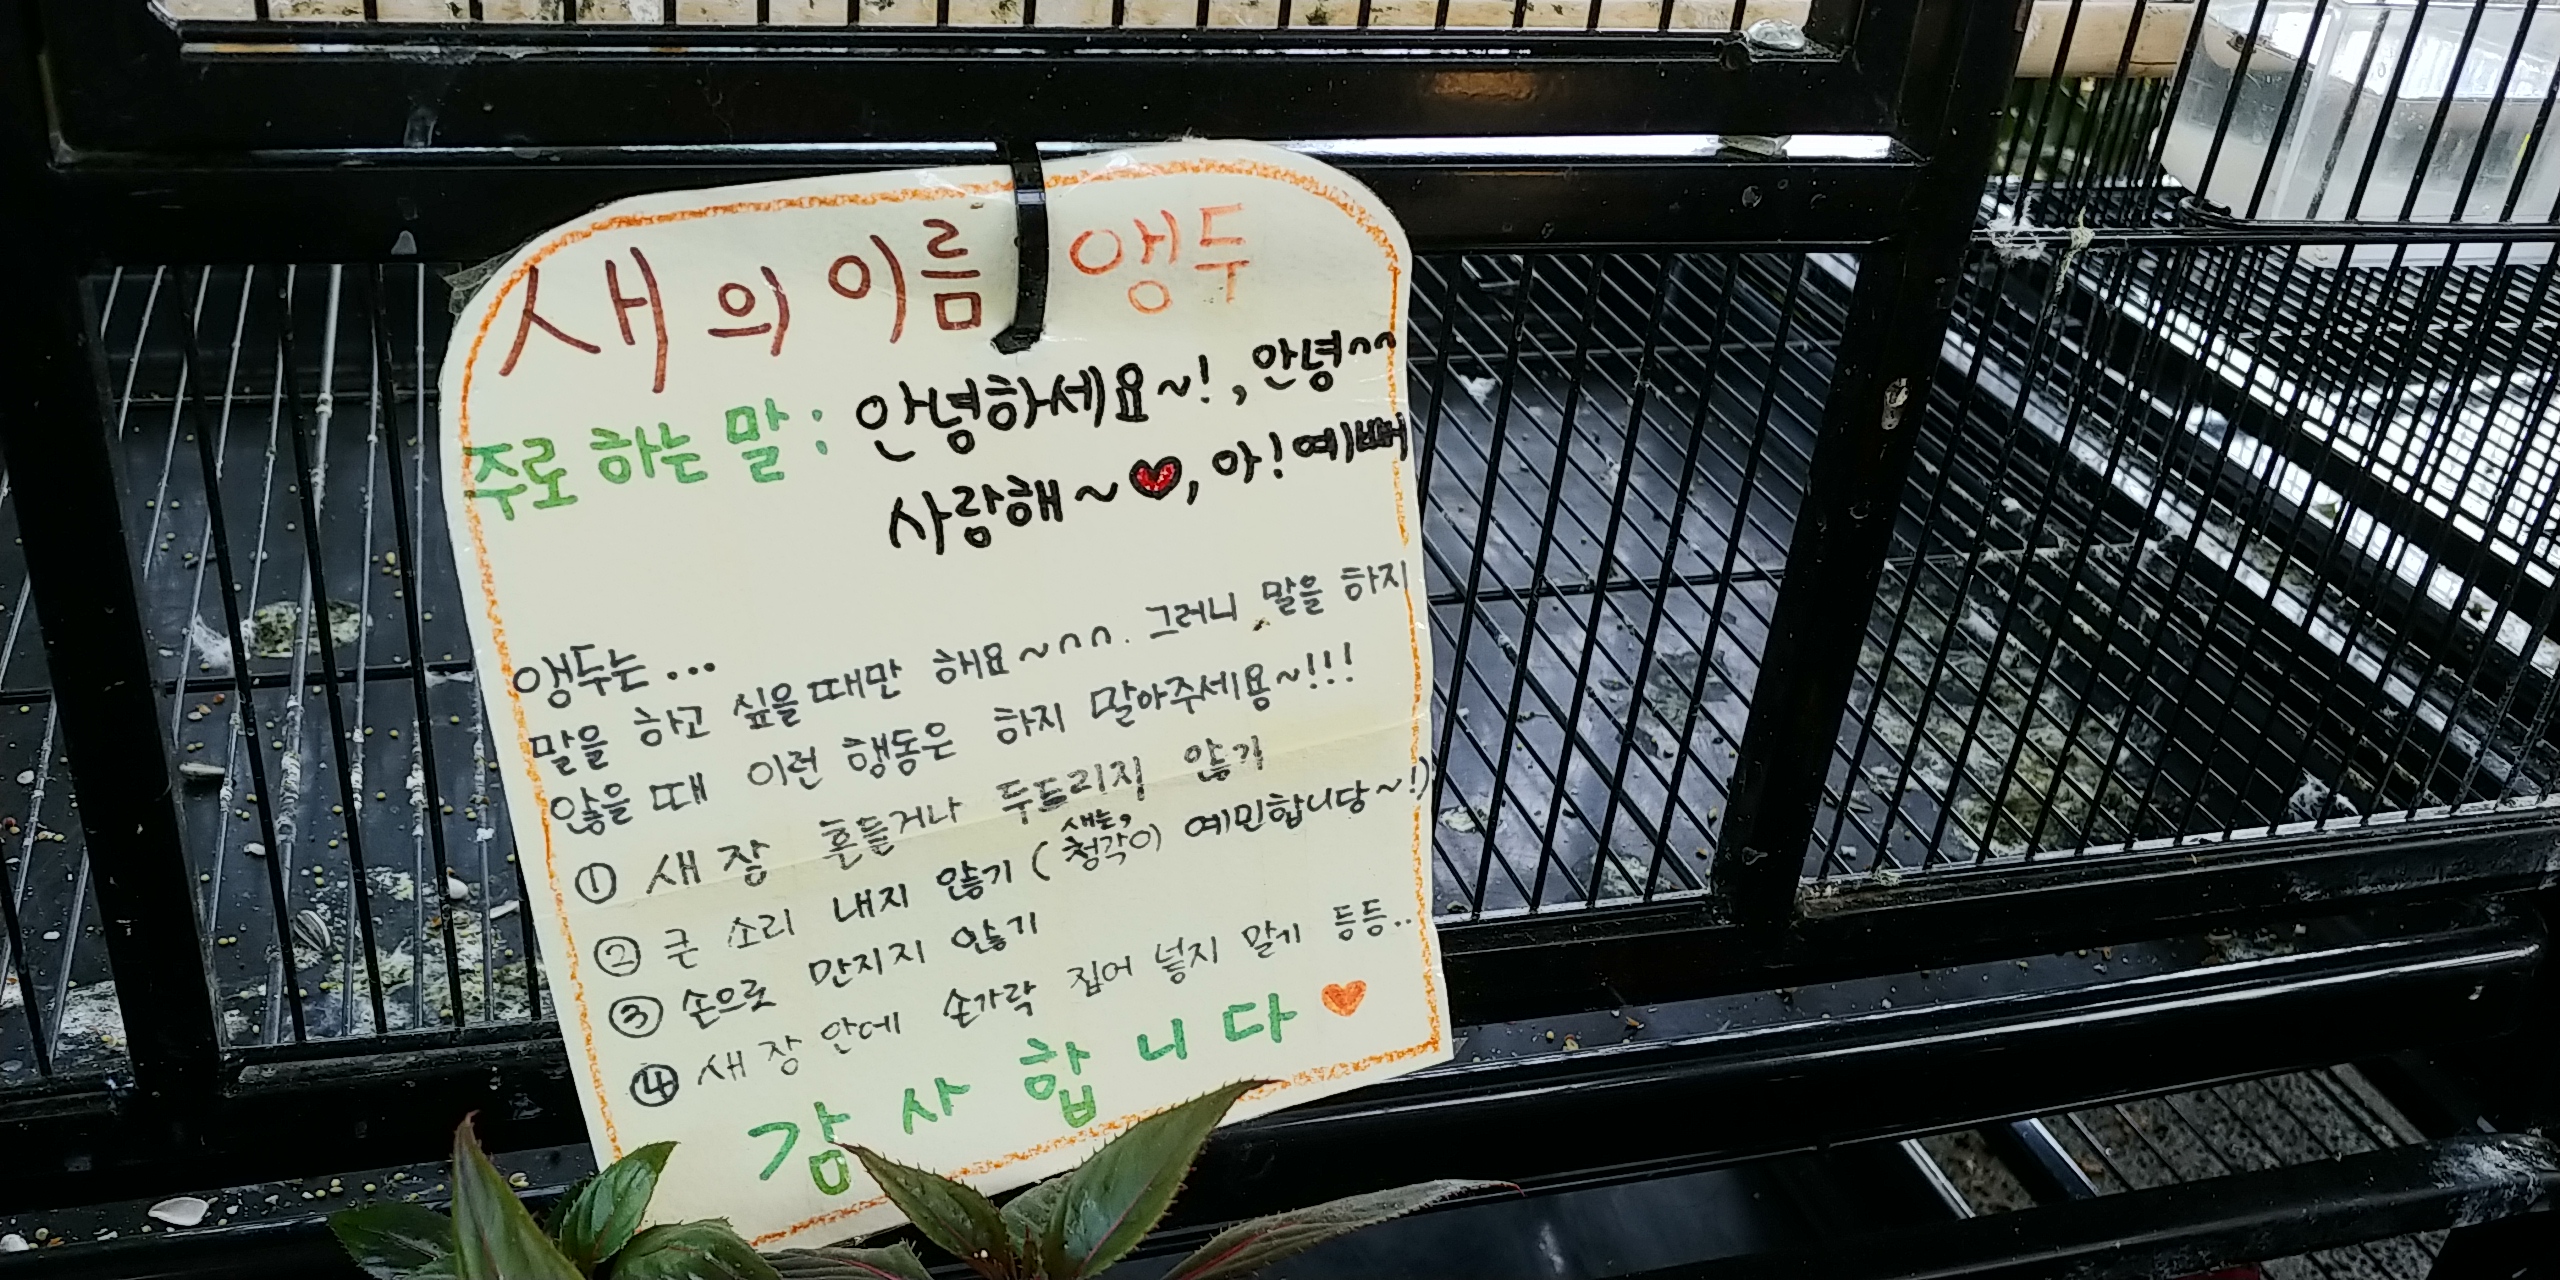 새의 이름 앵두
주로 하는 말 : 안녕하세요~!, 안녕^^
사랑해~♥, 아! 예뻐
앵두는...
말을 하고 싶을때만 해요~^^. 그러니 말을 하지
않을 때 이런 행동은 하지 말아주세용~!!!
① 새장 흔들거나 두드리지 않기
② 큰 소리 내지 않기 (새는, 청각이 예민합니당~!)
③ 손으로 만지지 않기
④ 새장 안에 손가락 집어 넣지 말기 등등..
감사합니다♥